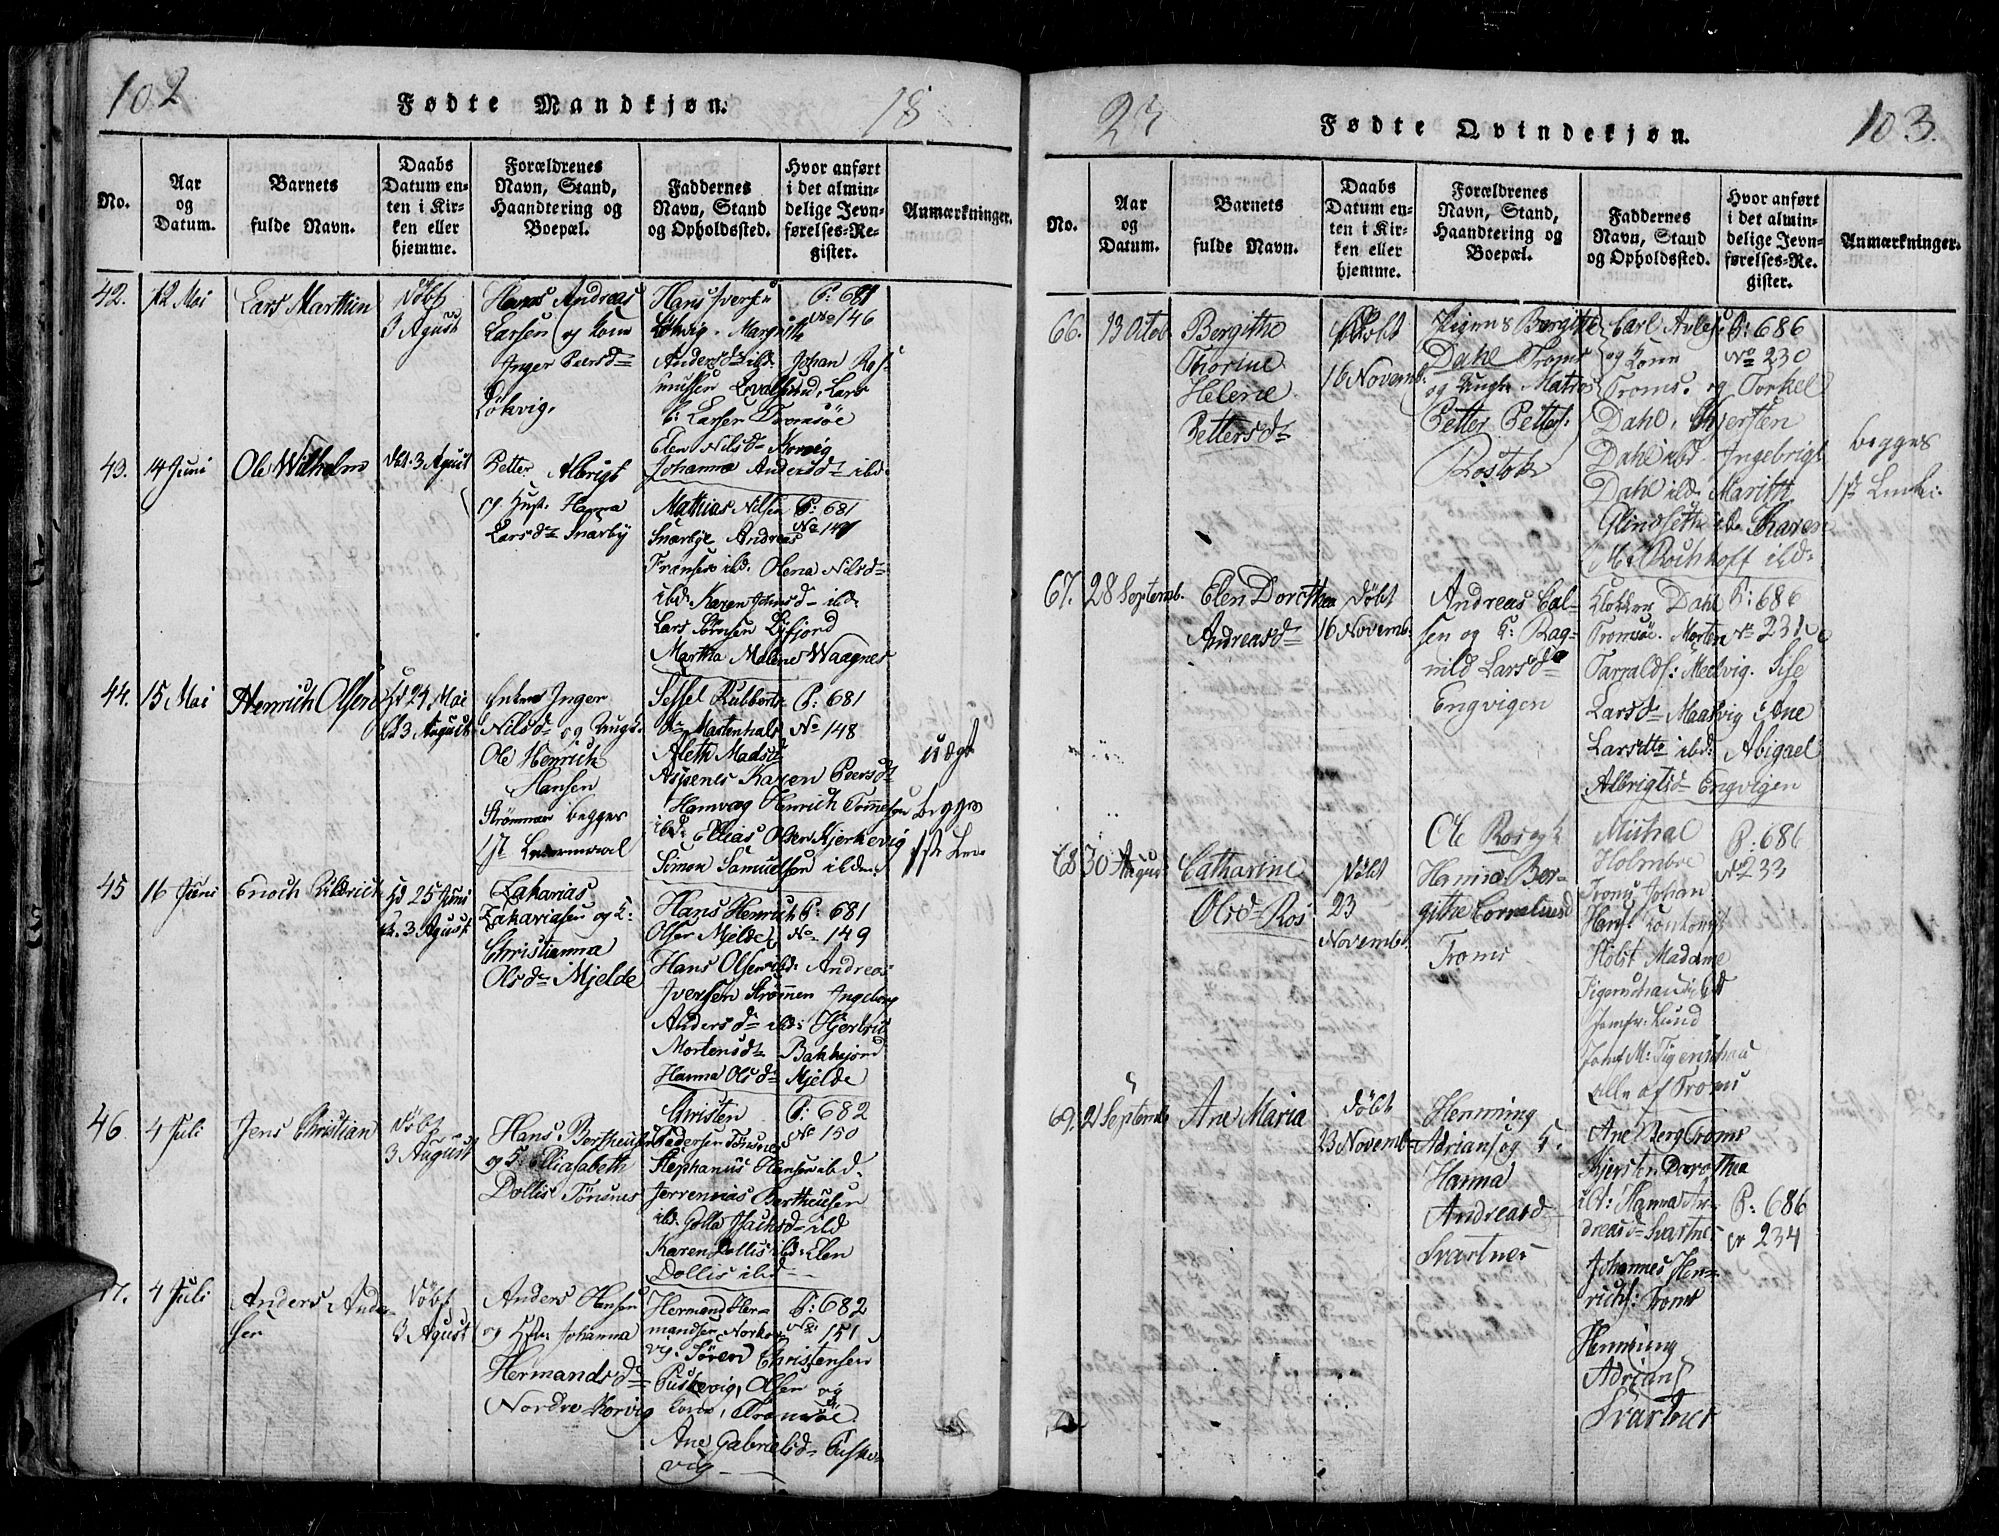 102
Fødte Mandkjøn.
18
No.
Aar
og
Datum.
Barnets
fulde Navn.
Daabs
Datum en-
ten i Kir-
ken eller
hjemme.
Forældrenes
Navn, Stand,
Haandtering og
Boepæl.
Faddernes
Navn, Stand
og Opholdssted.
Hvor anført
i det almin-
delige Jevn-
førelses-Re-
gister.
Anmærkninger.
42.
12 Mai
Lars Marthin
Døbt
3 August
Hans Andreas
Larsen og Kone
Inger Peersd
Løkvig.
Hans Iversen
Løkvig. Margrethe
Andersd ibd. Johan Ras-
mussen Qvalsund, Lars
Larsen Tromsöe
Elen Nilsd Korvig
Johanna Andersd ibd.
P: 681
No 146
43.
14 Juni
Ole Wilhelm
Dbt. 3 August
Petter Albrigt
og Hust. Hanna
Larsd Snarby
Mathias Nilsen
Snarbye Andreas
Fransen ibd. Olena Nilsd
ibd. Karen Johnsd ibd.
Lars Sørnsen Lifjord
Martha Waagnes
P: 681
No 147
44.
15 Mai
Henrich Olsen
Hd 24 Mai
3 August
Enken Inger
Nilsd og Ungk.
Ole Henrich
Hansen
Strømmen begges
1st Leiermaal
Sessel Rubberts
Martenhals
Aleth Madsd
Aspenes Karen Peersd
Hamvog Henrich Tommesen
ibd. Ellias Olsen Kjerkevig
Simon Samuelsen ibd.
P: 681
No 148
uægt
begges
1ste Leie
45
16 Juni
Enoch Dildrich
Hd 25 Juni
3 August
Zakarias
Zakariasen og K:
Christianna
Olsd Mjelde
Hans Henrich
Olsen Mjelde
Hans Olsen ibd. Andreas
Iversen Strømmen Ingeborg
Andersd ibd: Hjertrud
Mortensd Bakkejord
Hanna Olsd Mjelde
P: 681
No. 149
46
4 Juli
Jens Christian
Døbt
3 August
Hans Bertheusen
og K: Elliasabeth
Dollis Tönsnes
Christen
Pedersen Tønsnes
Stephanus Hansen ibd.
Jerremias Bertheusen
ibd. Golla Isachsd ibd
Karen Dollis ibd: Elen
Dollis ibd
P: 682
No 150
47.
4 Juli
Anders Ander-
sen
Døbt
3 August
Anders Hansen
og Hstr. Johanna
Hermandsd
Nordre Korvig
Hermand Her-
mandsen Norkor-
vig. Søren Christensen
Puskevig, Olsen og
Kone, Tromsöe.
Ane Gabrielsd Puske-
vig
P: 682
No 151
23
Fødte Qvindekjøn.
103.
No.
Aar
og
Datum.
Barnets
fulde Navn.
Daabs
Datum en-
ten i Kir-
ken eller
hjemme.
Forældrenes
Navn, Stand,
Haandtering og
Boepæl.
Faddernes
Navn, Stand
og Opholdssted.
Hvor anført
i det almin-
delige Jevn-
førelses-Re-
gister.
Anmærkninger.
66.
13 Octob.
Bergithe
Thorine
Helene
Pettersd
Døbt
16 Novemb.
Pigen Bergitte
Dahl Troms
og Ungk. Matros
Petter Petters.
Rostok
Carl Arles.
og Kone
Troms. og Torkel
Dahl, Thersten
Dahl ibd. Ingebrigt
Dahl ibd. Marith
Glindseth ibd. Karen
M. Rochhoff ibd.
P: 686
No 230
begges
1ste Leie.
67.
28 Septemb.
Elen Dorothea
Andreasd
Døbt
16 Novemb.
Andreas Cal-
sen og K: Rag-
nild Larsd
Engvigen
Klokker Dahl
Tromsöe. Morten
Tarralds: Medvig. Sise
Larsd Maasvig Ane
Larsdtr ibd. Abigael
Albrigtsd Engvigen
P: 686
No 231
68
30 August
Catharine
Olsd Ros
Døbt
23
Novemb.
Ole Ros og K
Hanna Ber-
githe Corneliusd
Troms
Michal
Holmboe
Troms Johan
Hans.
Holst Madame
Figenschau ibd
Jomfr. Lund
Jomf M: Figenschau
alle af Troms
P. 686
No 233
69.
21 Septemb
Ane Maria
Døbt
23 Novemb
Henning
Adrians og K.
Hanna
Andreasd
Svartnes
Ane Berg Troms
Kjersten Dorothea
ibd: Hanna An-
dreasd Svartnes
Johannes Hen-
richs: Troms
Henning
Adrians
Svartnes
P: 686
No 234